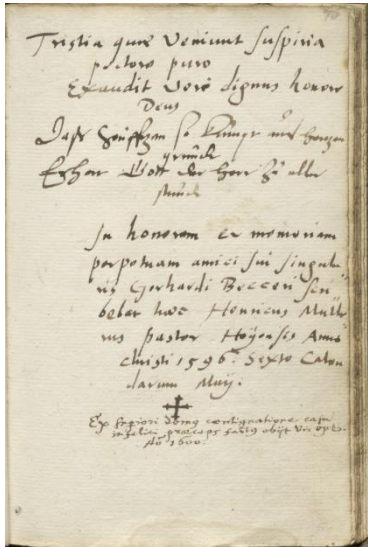 Tristia quae veniunt suspiria
pectore puro
Exaudit vere dignus honore
Deus
Dass Seufftzen so kumpt aus hertzen
grundt
Erhort Gott der Herr zu aller
stundt
In honorem et memoriam
perpetuam amici sui singula-
ris Gerhardi Becceri scri
bebat haec Henricus Mulle
rus pastor Hoyensis Anno
Christi 1596. Sexto Calen
darum Maij.
Ex superiori domus contignatione casu
infelici praeceps factus obijt vir opt.
Ao 1600.